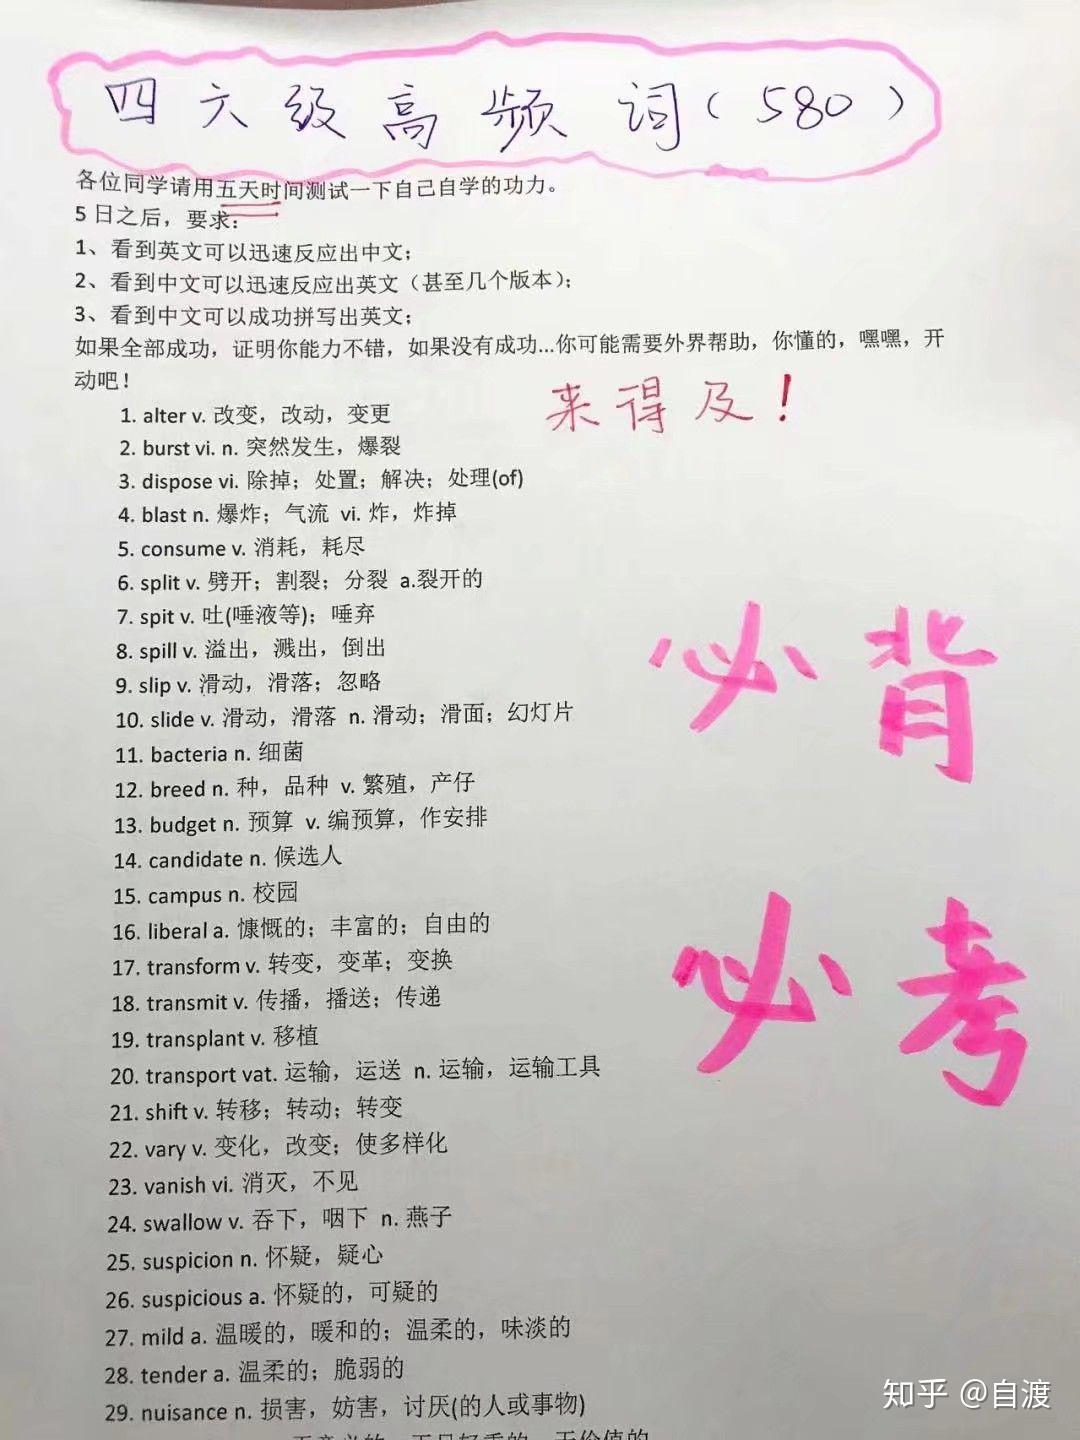 四六级高频词（580）
各位同学请用五天时间测试一下自己自学的功力。
5日之后，要求：
1、看到英文可以迅速反应出中文；
2、看到中文可以迅速反应出英文（甚至几个版本）；
3、看到中文可以成功拼写出英文；
如果全部成功，证明你能力不错，如果没有成功...你可能需要外界帮助，你懂的，嘿嘿，开
动吧！
来得及！
1. alter v. 改变，改动，变更
2. burst vi. n. 突然发生，爆裂
3. dispose vi. 除掉；处置；解决；处理(of)
4. blast n. 爆炸；气流 vi. 炸，炸掉
5. consume v. 消耗，耗尽
6. split v. 劈开；割裂；分裂 a.裂开的
7. spit v. 吐(唾液等)；唾弃
8. spill v. 溢出，溅出，倒出
9. slip v. 滑动，滑落；忽略
10. slide v. 滑动，滑落 n. 滑动；滑面；幻灯片
11. bacteria n. 细菌
12. breed n. 种，品种 v. 繁殖，产仔
13. budget n. 预算 v. 编预算，作安排
14. candidate n. 候选人
15. campus n. 校园
16. liberal a. 慷慨的；丰富的；自由的
17. transform v. 转变，变革；变换
18. transmit v. 传播，播送；传递
19. transplant v. 移植
20. transport vat. 运输，运送 n. 运输，运输工具
21. shift v. 转移；转动；转变
22. vary v. 变化，改变；使多样化
23. vanish vi. 消灭，不见
24. swallow v. 吞下，咽下 n. 燕子
25. suspicion n. 怀疑，疑心
26. suspicious a. 怀疑的，可疑的
27. mild a. 温暖的，暖和的；温柔的，味淡的
28. tender a. 温柔的；脆弱的
29. nuisance n. 损害，妨害，讨厌(的人或事物)
必背
必考
知乎 @自渡